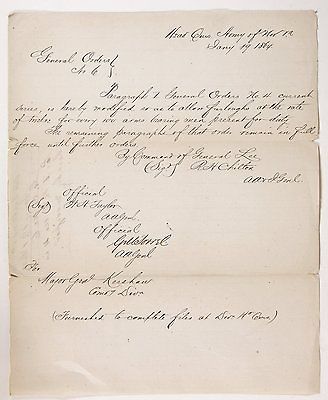 Head Qurs Army of Nor Va
Jany 19 1864
General Orders
No 6
Paragraph 1 General Orders No 4 current
series, is hereby modified so as to allow furloughs at the rate
of twelve for every 100 arms bearing men present for duty.
The remaining paragraphs of that order remain in full
force until further orders.
By Command of General Lee
(Sigd) R. H. Chilton
A A & I Genl
Official
(Sigd) W H Taylor
A A Genl
Official
A A Genl
For
Major Genl Kershaw
Comdg Divn
(Furnished to complete files at Div. Hd Qurs)